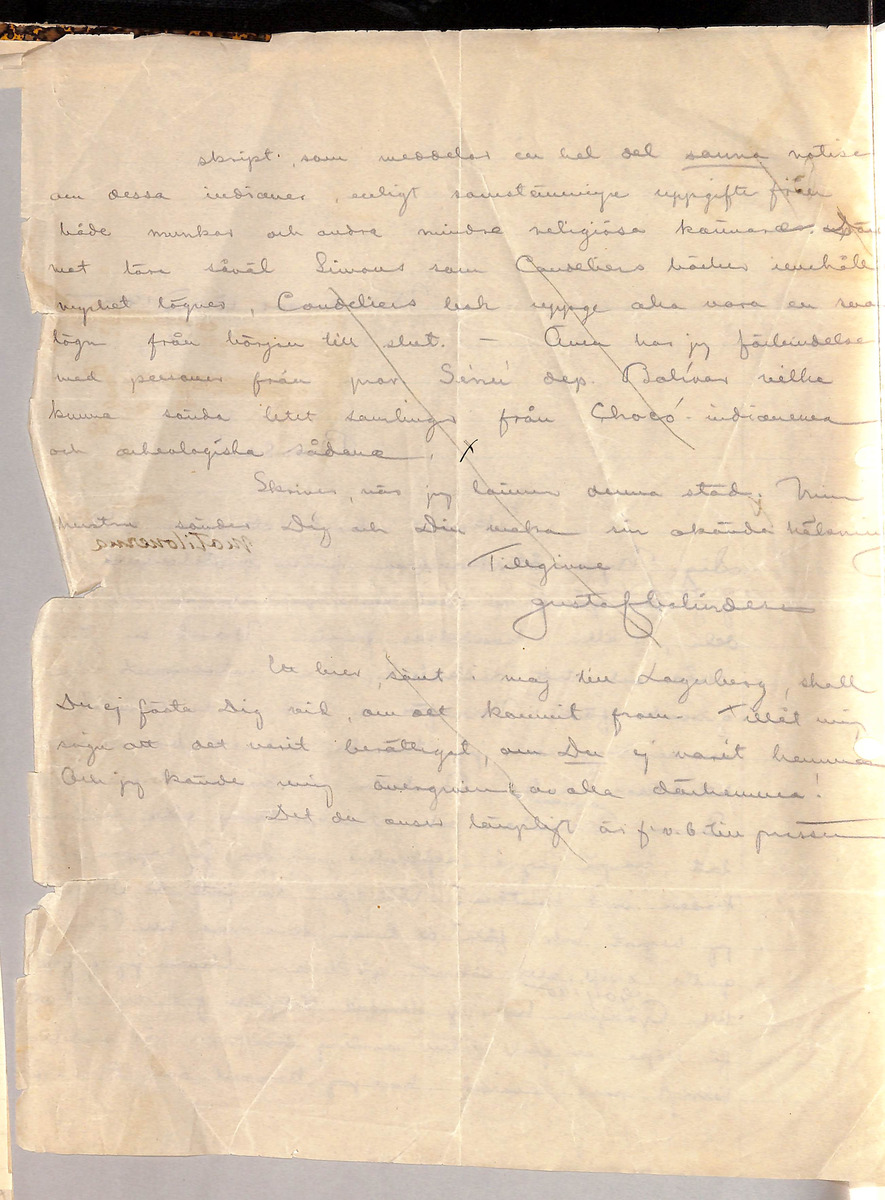 skript, som meddelar en hel del sanna notise
om dessa indianer, enligt samstämmiga uppgifter från
både munkar och andra mindre religiösa kännare.
met tära såväl Simons som Candeliers böcker innehåll
mycket lögner, Candeliers bok uppge alla vara en
lögn från början till slut. — Även har jag förbindelse
med personer från prov. Sinú dep. Bolívar vilka
kunna sända litet samlingar från Chocó-indianerna
och arkeologiska sådana. x
Skriver, när jag lämnar denna stad. Min
hustru sänder Dig och Din maka sin okända hälsning
motilonerna
Tillgivne
Gustaf Bolinder
Ett brev, sänt i maj till Lagerberg, skall
Du ej fästa Dig vid, om det kommit fram. Tillåt mig
säga att det varit berättigat, om Du ej varit hemma
Och jag kände mig övergiven av alla därhemma!
Det du anser lämpligt är f.v.b. till pressen